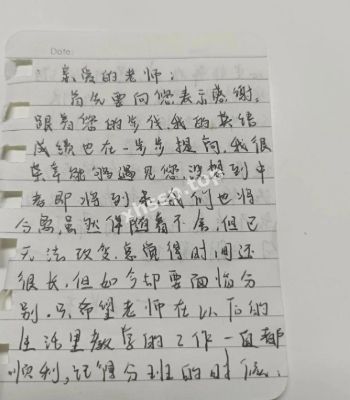 Date:
亲爱的老师：
首先要向您表示感谢，
跟着您的步伐，我的英语
成绩也在一步步提高，我很
荣幸能够遇见您，没想到中
考即将到来，我们也将
分离，虽然伴随着不舍，但已
无法改变，总觉得时间还
很长，但如今却要面临分
别。只希望老师在以后的
生活里教学的工作一直都
顺利，记得分班的时候、
zhssp.top